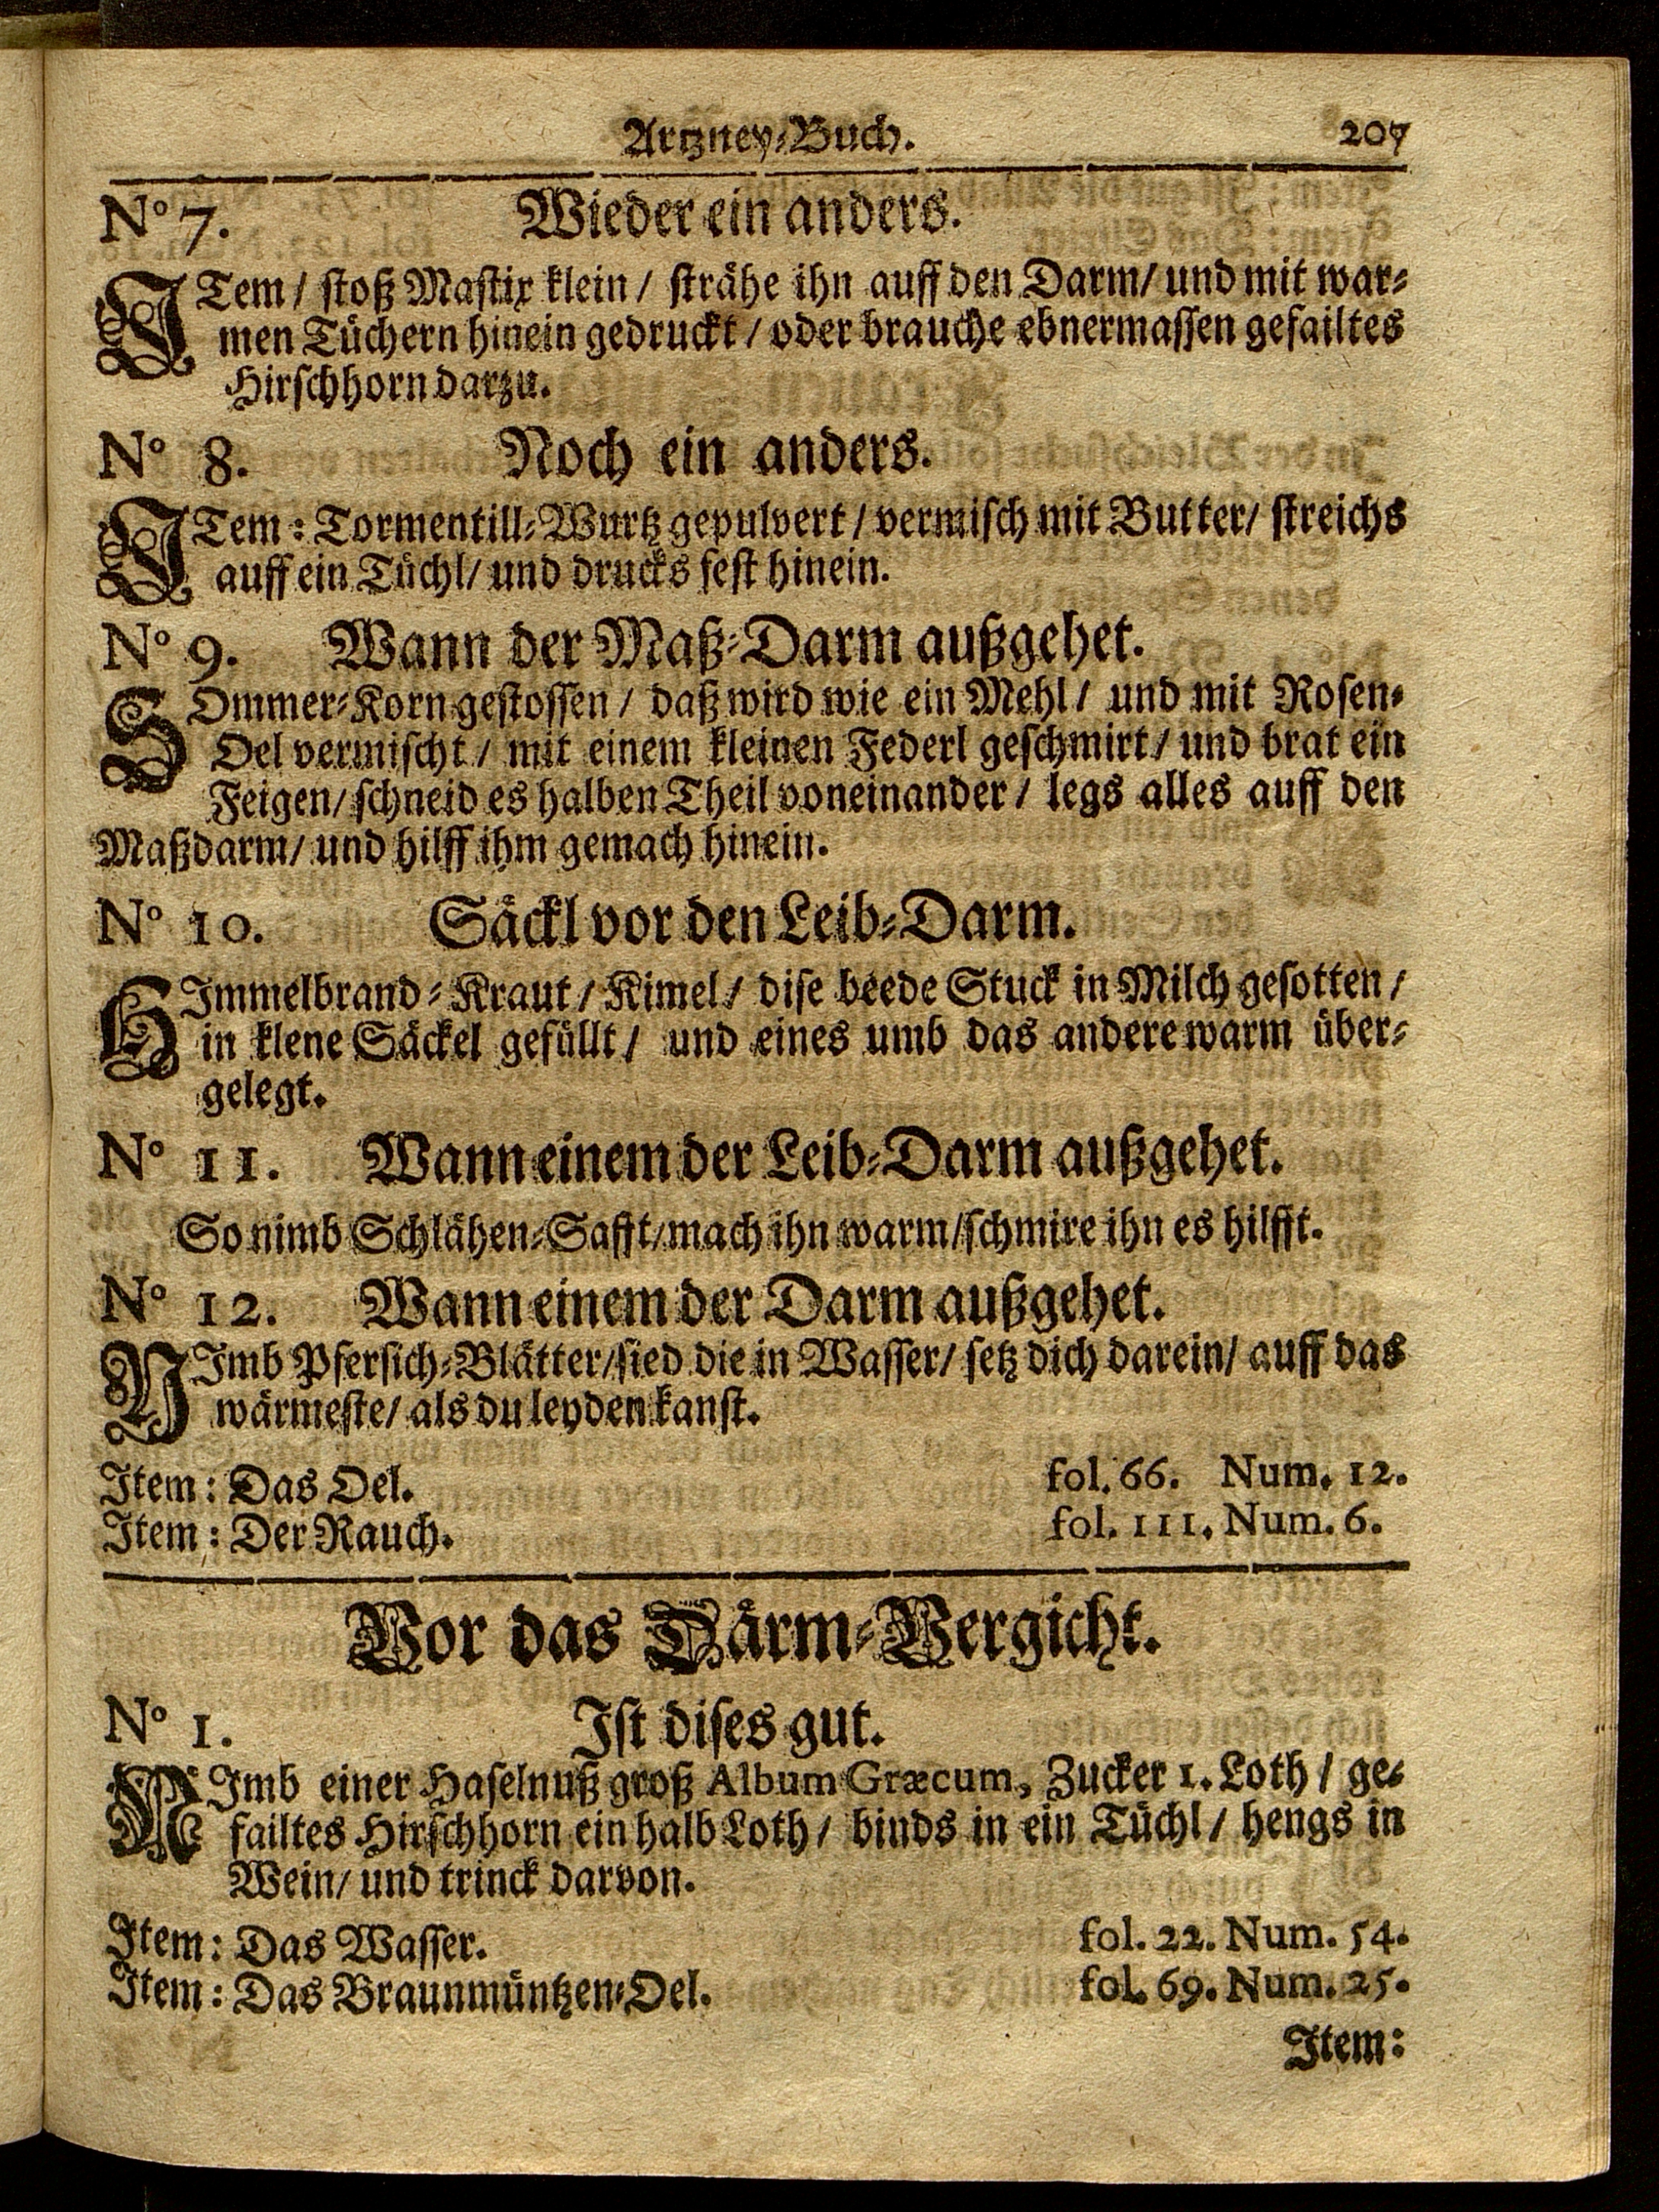 Artzney-Buch. 207
No 7. Wieder ein anders.
ITem / stoß Mastix klein / strähe ihn auff den Darm / und mit war-
men Tüchern hinein gedruckt / oder brauche ebnermassen gefailtes
Hirschhorn darzu.
No 8. Noch ein anders.
ITem: Tormentill-Wurtz gepulvert / vermisch mit Butter / streichs
auff ein Tüchl / und drucks fest hinein.
No 9. Wann der Maß-Darm außgehet.
SOmmer-Korn gestossen / daß wird wie ein Mehl / und mit Rosen-
Oel vermischt / mit einem kleinen Federl geschmirt / und brat ein
Feigen / schneid es halben Theil voneinander / legs alles auff den
Maßdarm / und hilff ihm gemach hinein.
No 10. Säckl vor den Leib-Darm.
HImmelbrand-Kraut / Kimel / dise beede Stuck in Milch gesotten /
in klene Säckel gefüllt / und eines umb das andere warm über-
gelegt.
No 11. Wann einem der Leib-Darm außgehet.
So nimb Schlähen-Safft / mach ihn warm / schmire ihn es hilfft.
No 12. Wann einem der Darm außgehet.
NImb Pfersich-Blätter / sied die in Wasser / setz dich darein / auff das
wärmeste / als du leyden kanst.
Item: Das Oel. fol. 66. Num. 12.
Item: Der Rauch. fol. 111. Num. 6.
Vor das Därm-Vergicht.
No 1. Ist dises gut.
NImb einer Haselnuß groß Album Græcum, Zucker 1. Loth / ge-
failtes Hirschhorn ein halb Loth / binds in ein Tüchl / hengs in
Wein / und trinck darvon.
Item: Das Wasser. fol. 22. Num. 54.
Item: Das Braunmüntzen-Oel. fol. 69. Num. 25.
Item: